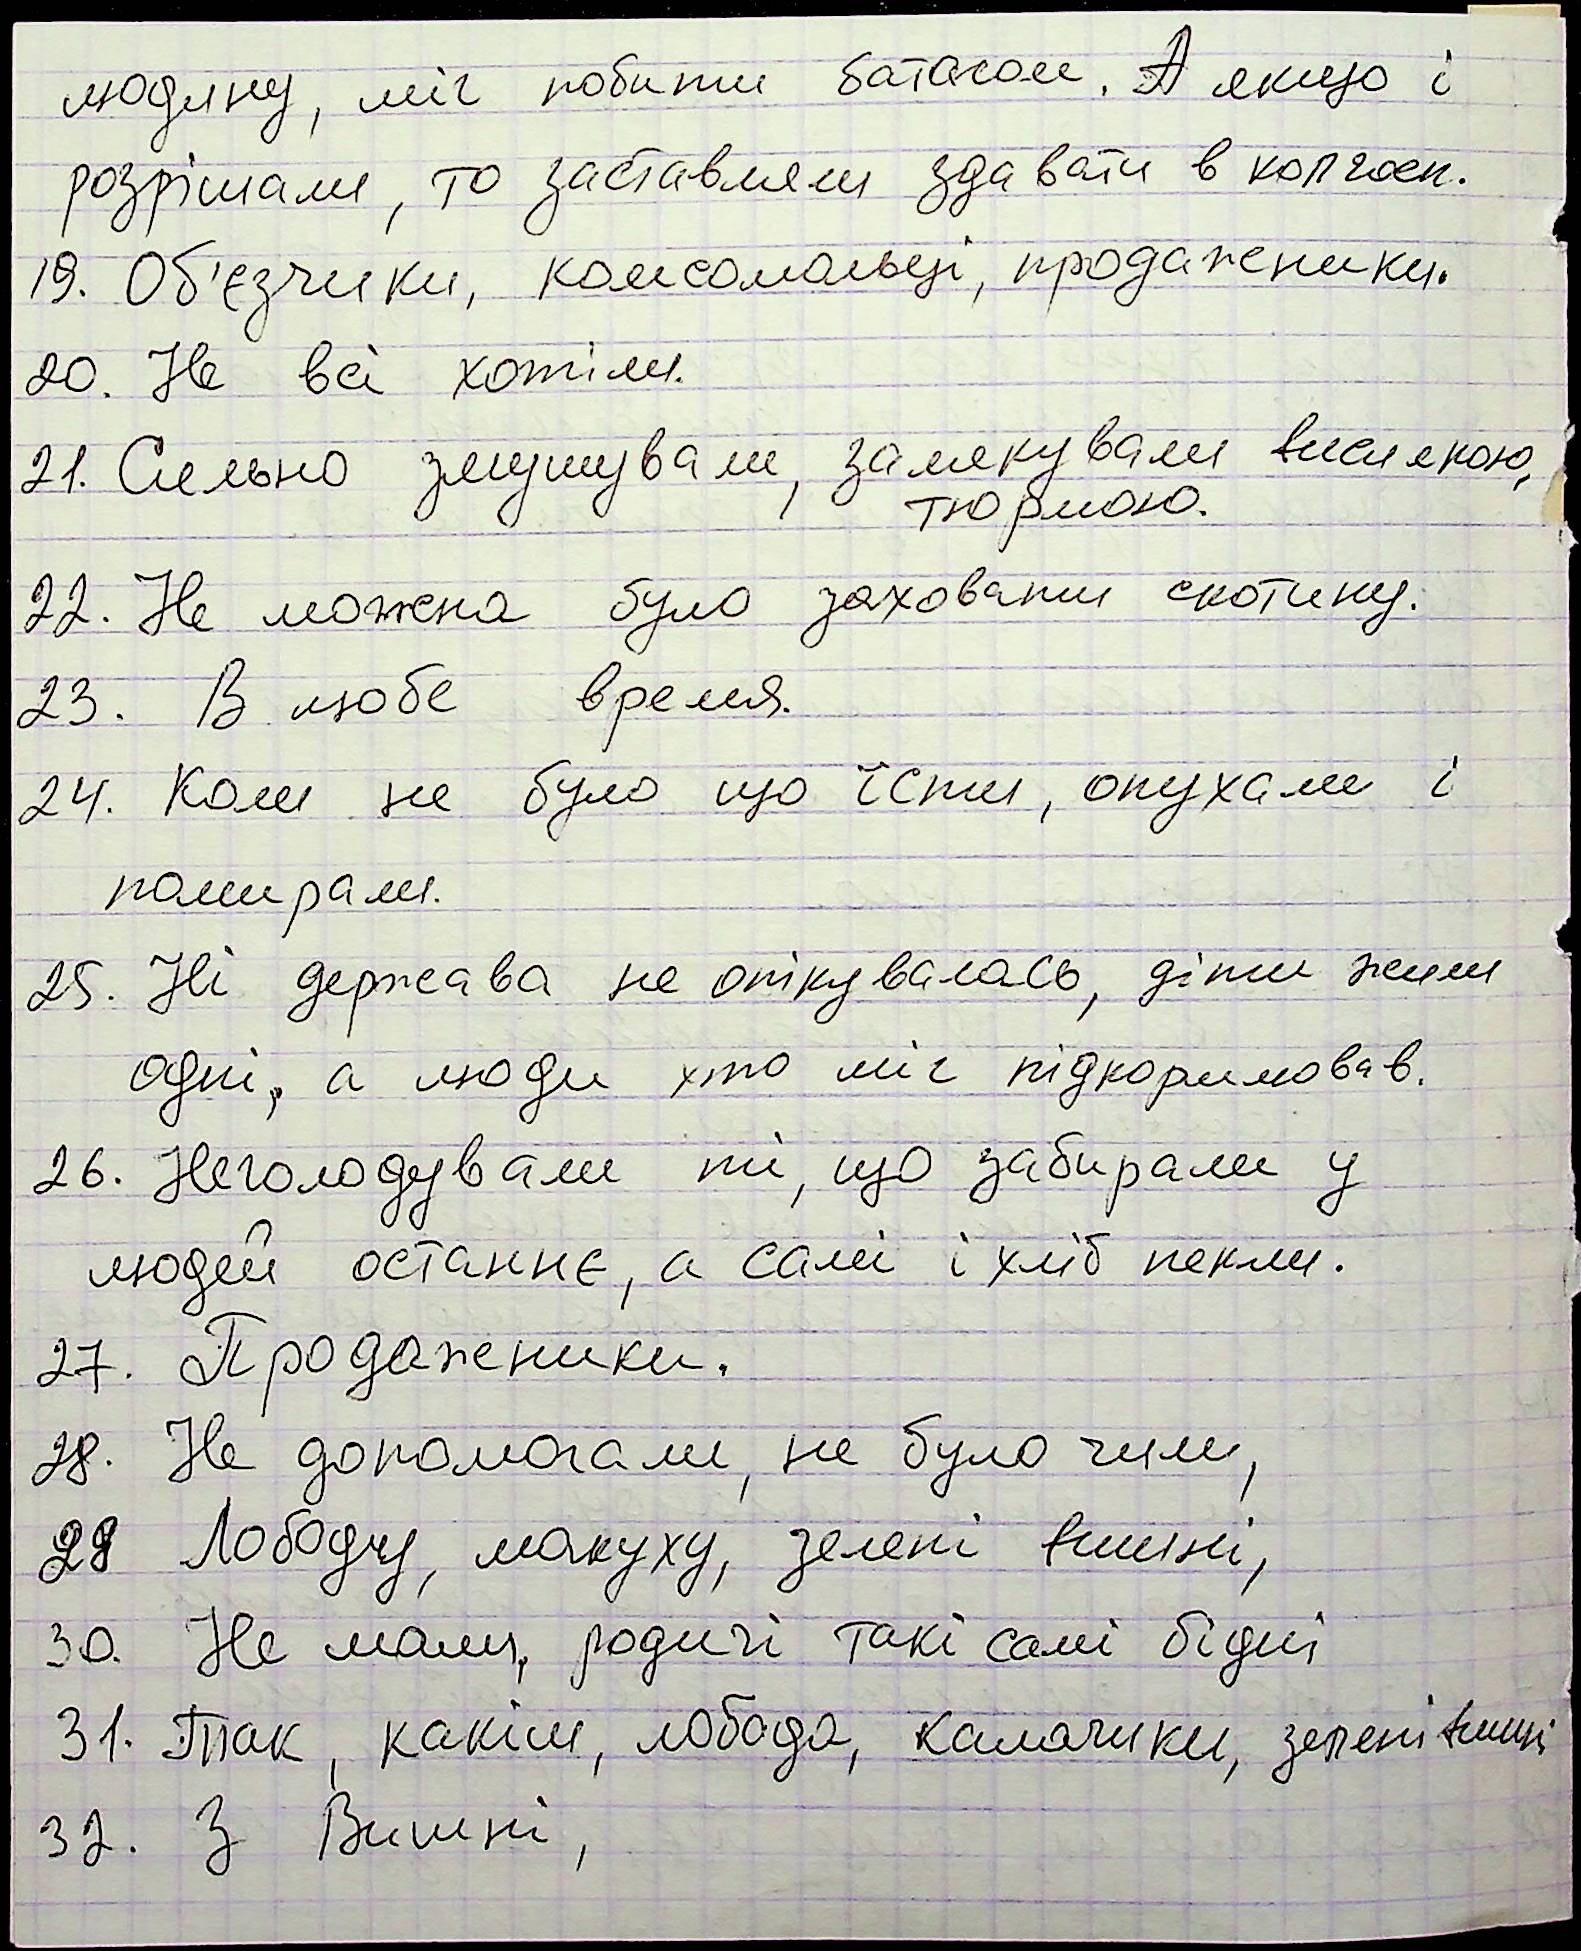 людину, міг побити батагом. А якщо і
розрішали, то заставляли здавати в колгосп.
19. Об'єзчики, комсомольці, продаженики.
20. Не всі хотіли.
21. Сильно змушували, залякували висилкою,
тюрмою.
22. Не можна було заховати скотину.
23. В любе время.
24. Коли не було що їсти, опухали і
помирали.
25. Ні держава не опікувалась, діти жили
одні, а люди хто міг підкормлював.
26. Не голодували ті, що забирали у
людей останнє, а самі і хліб пекли.
27. Продаженики.
28. Не допомогали, не було чим,
29 Лободу, макуху, зелені вишні,
30. Не мали, родичі такі самі бідні
31. Так, какіш, лобода, калачики, зелені вишні
32. З Вишні,